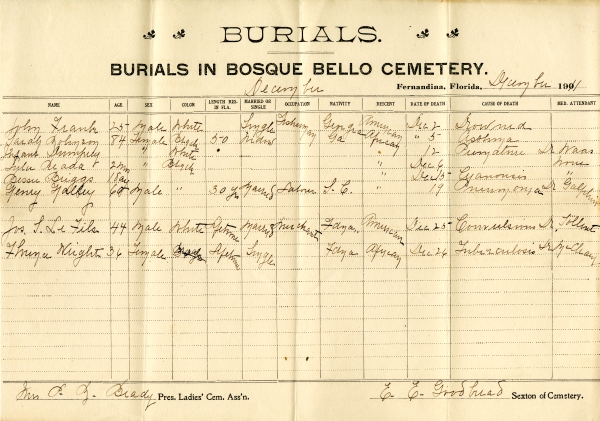 BURIALS.
BURIALS IN BOSQUE BELLO CEMETERY.
December Fernandina, Florida, December 1901
NAME AGE SEX COLOR LENGTH RES- IN FLA. MARRIED OR SINGLE OCCUPATION NATIVITY DESCENT DATE OF DEATH CAUSE OF DEATH MED. ATTENDANT
John Frank 25 Male White Single Georgia American Dec 2 Drowned
Sarah Robinson 84 Female Black 50 Widow Ga African " 5 Asthma
Infant Dumphey " White " 12 Premature Dr Waas
Lula Reada 2 " Black " Dec 6 none
Bessie Briggs " Dec 13 "
Henry 60 Male " 30 yrs Married Laborer S. C. " 19 Pneumonia Dr
Jos. S. Le Fils 44 Male White Lifetime Married Merchant American Dec 25 Convulsions Dr
Wright 36 Female Lifetime Single African Dec 26 Tuberculosis Dr
Mrs P. Brady Pres. Ladies' Cem. Ass'n. E. E. Goodbread Sexton of Cemetery.